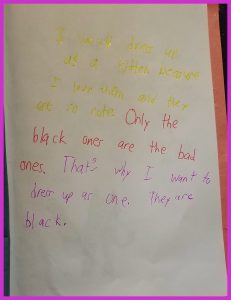 I will dress up
as a kitten because
I love them and they
are so cute. Only the
black ones are the bad
ones. That's why I want to
dress up as one. They are
black.